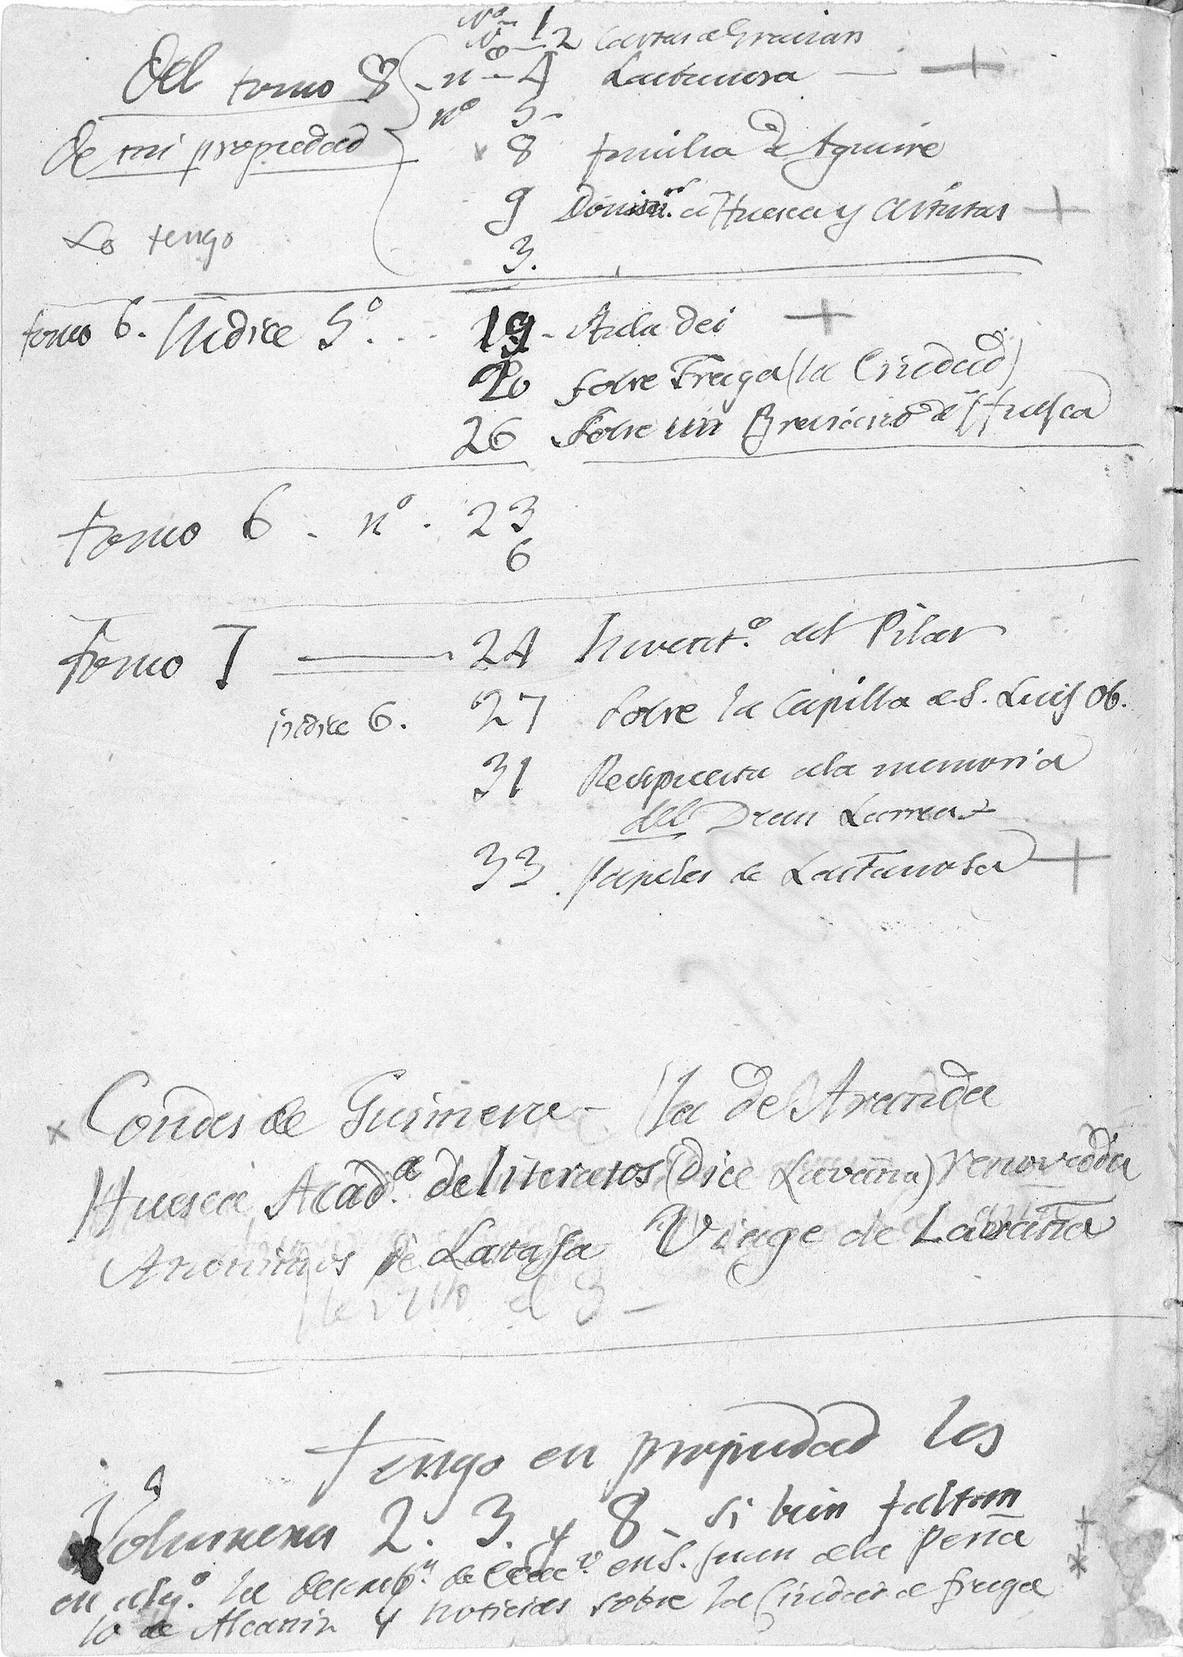 Nº 1
Nº 2 Cartas de Gracian
Del tomo 8 nº 4 Lastanosa — +
de mi propiedad nº 5
x 8 familia de Aguirre
9 a Huesca y +
Lo tengo
3.
tomo 6. Indice 5º... 19 - Aula Dei +
20 sobre Fraga (la Ciudad)
26 Sobre un Breviario de Huesca
tomo 6. nº. 23
6
tomo 7 — 24 Invent.º del Pilar
indice 6. 27 sobre la Capilla de S. Luis Ob.
31 Respuesta a la memoria
del Dean Larrea
33. papeles de Lastanosa +
x Condes de Guimera - Ya de Aranda
Huesca, Acad.ª de literatos (dice Lavaña) renovada
de Latasa Viage de Lavaña
el 3 —
tengo en propiedad los
Volumenes 2. 3. y 8 - si bien faltan
en alg.º la descrip.n de en S. Juan de la Peña
lo de Alcañiz y noticias sobre la Ciudad de fraga